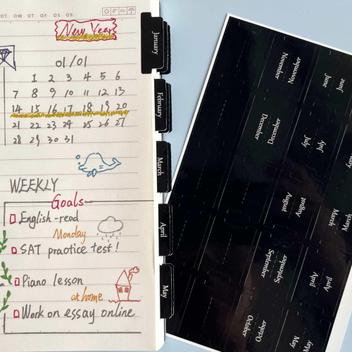 New Year
01/01
1 2 3 4 5 6
7 8 9 10 11 12 13
14 15 16 17 18 19 20
21 22 23 24 25 26 27
28 29 30 31
WEEKLY
Goals
English-read
Monday
SAT practice test!
Piano lesson
at home
Work on essay online
January
February
March
April
May
November
November
June
June
December
December
July
July
August
August
March
March
September
September
April
April
October
October
May